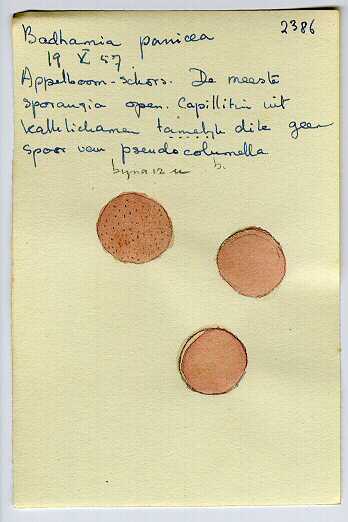 2386
Badhamia panicea
19 X 57
Appelboom-schors. De meeste
sporangia open. Capillitium wit
kalklichamen tamelijk dik geen
spoor van pseudocolumella
bijna 12 µ b.